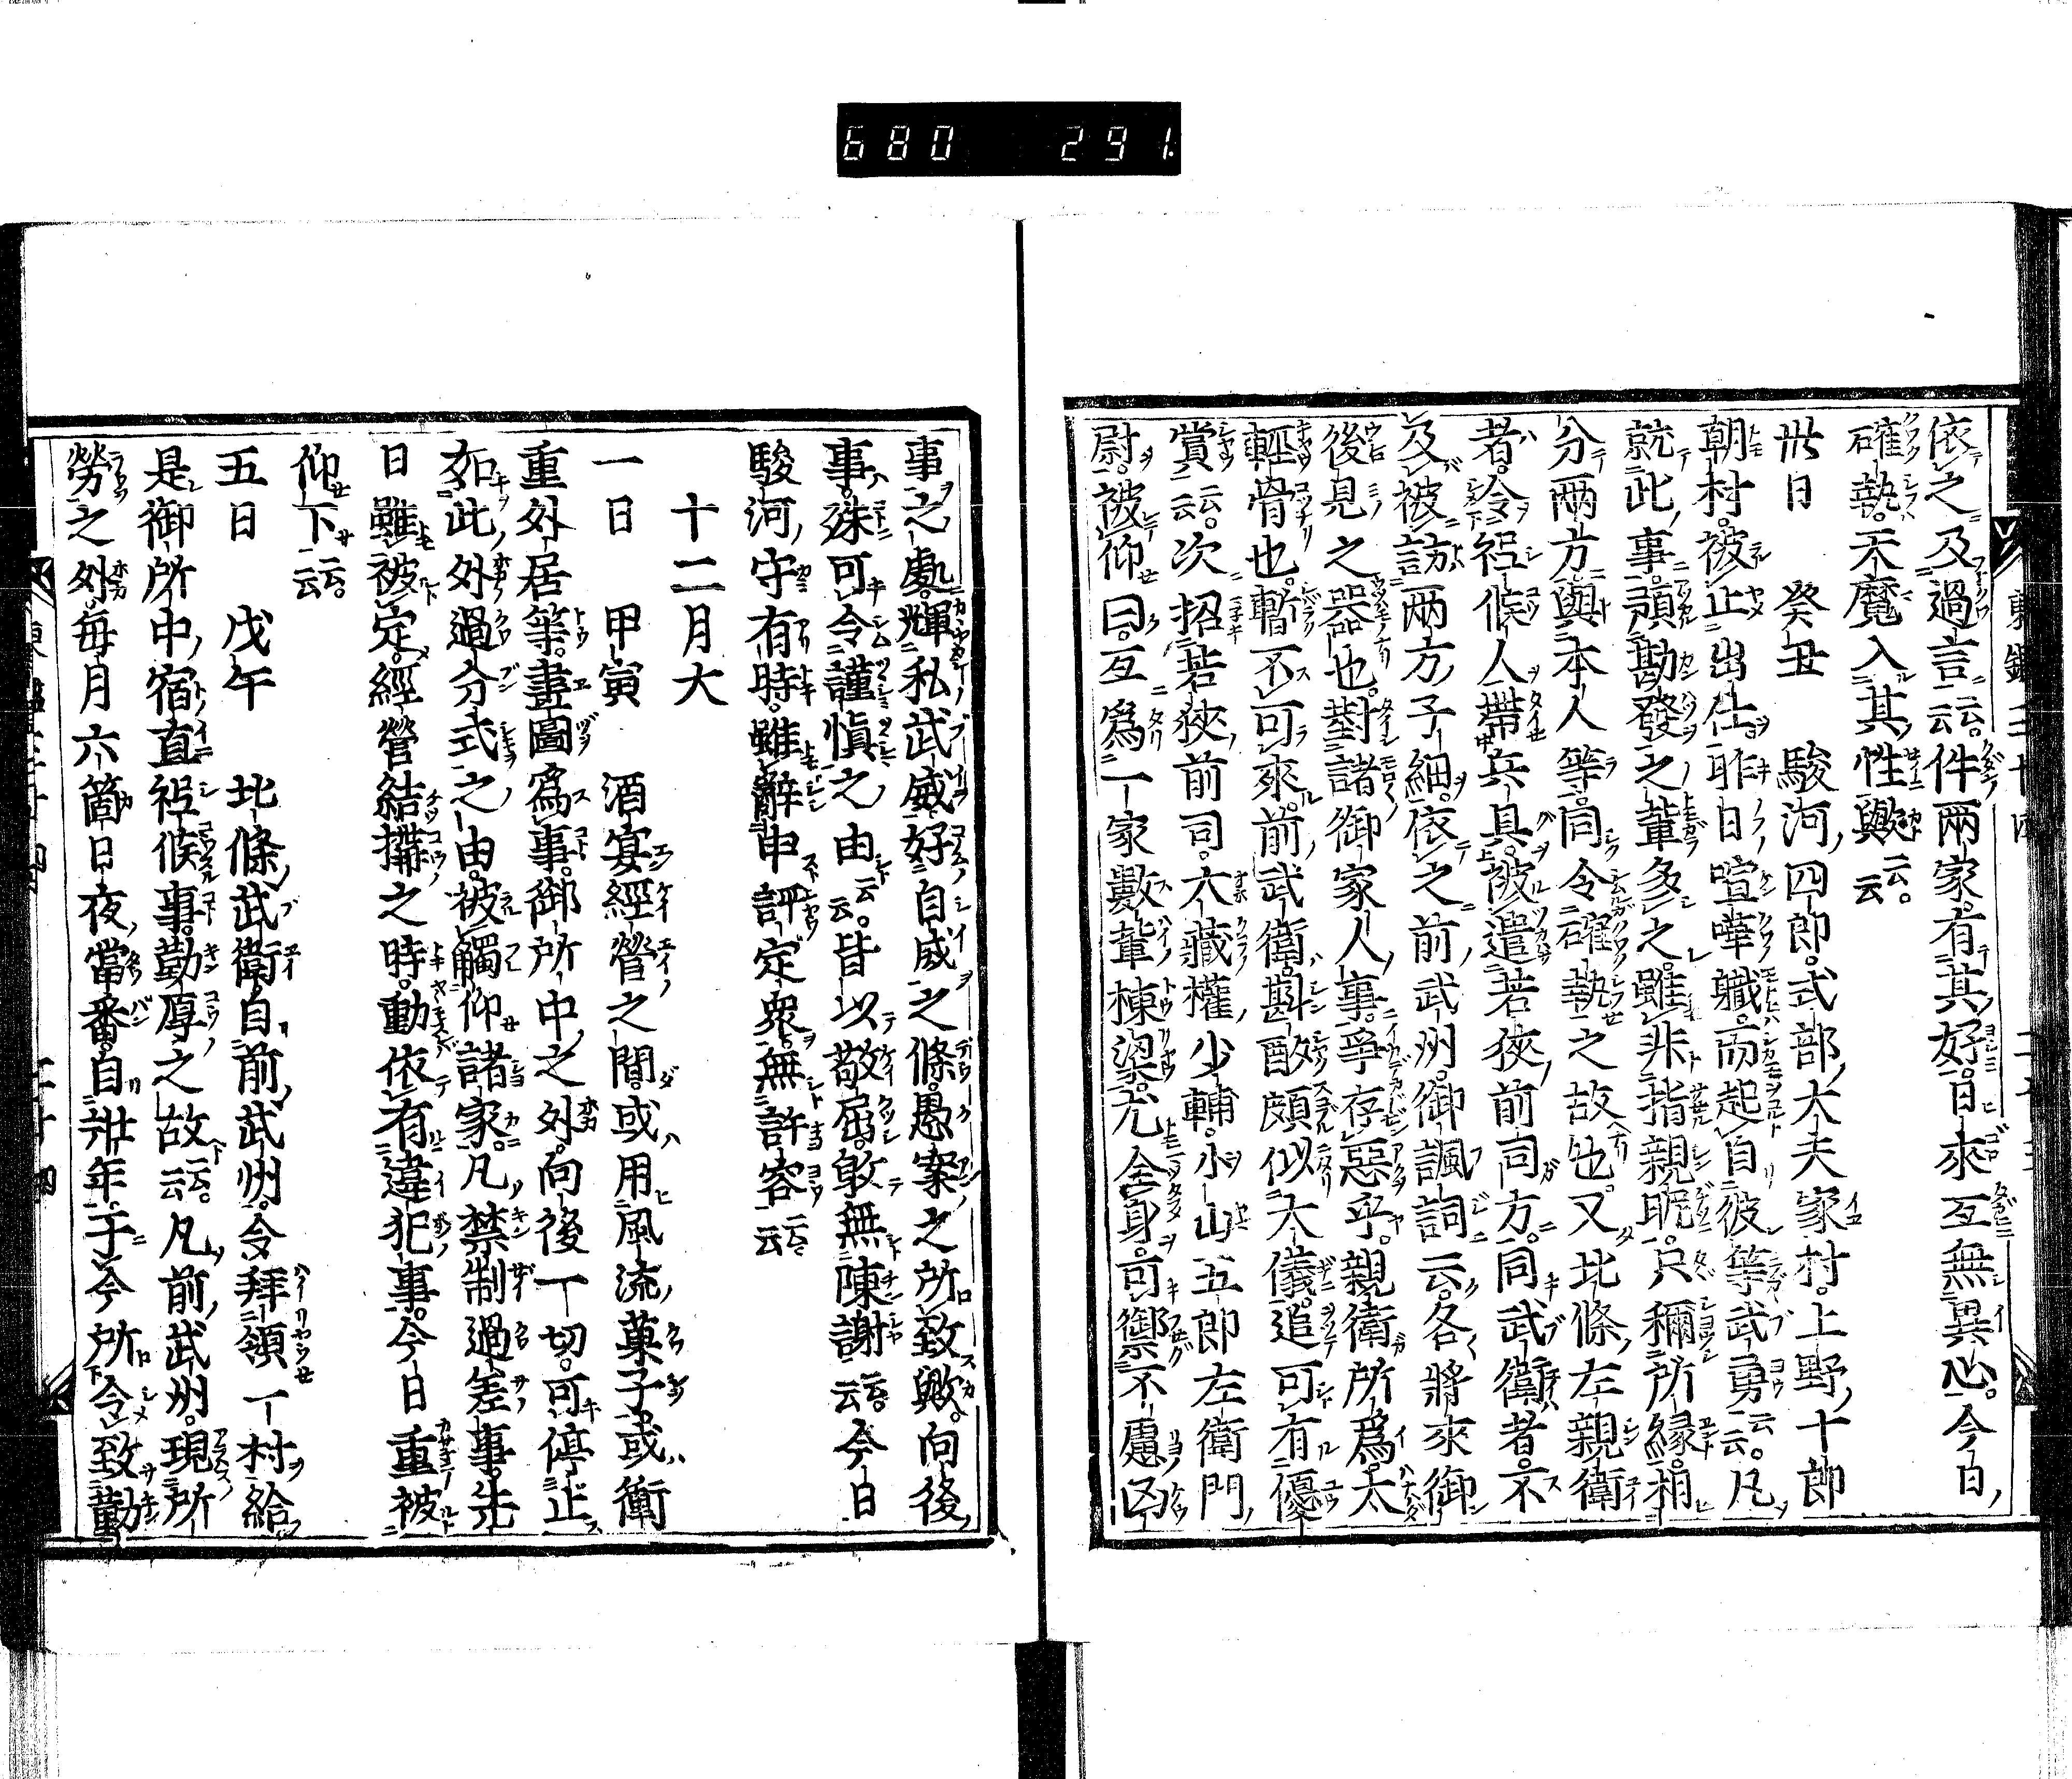 680 291
依之及過言云云。件兩家。有其好。日來互無異心。今日
確執。天魔入其性歟云云。
卅日 癸丑 駿河四郎式部大夫家村。上野十郎
朝村。被止出仕。昨日喧嘩職而起自彼等武勇云云。凡
就此事。預勘發之輩多之。雖非指親昵。只稱所緣。相
分兩方。與本人等。同令確執之故也。又北條左親衛
者。令祗候人帶兵具。被遣若狹前司方。同武衛者。不
及被訪兩方子細。依之前武州。御諷詞云。各將來御
後見之器也。對諸御家人事。爭存惡乎。親衛所爲。太
輕骨也。暫不可來前。武衛斟酌。頗似大儀。追可有優
賞云云。次招若狹前司。大藏權少輔。小山五郎左衛門
尉。被仰曰。互爲一家數輩棟梁。尤全身。可禦不慮凶
事之處。輝私武威。好自滅之條。愚案之所致歟。向後
事。殊可令謹愼之由云云。皆以敬屈。敢無陳謝云云。今日
駿河守有時。雖辭申評定衆。無許容云云
十二月大
一日 甲寅 酒宴經營之間。或用風流菓子。或衝
重外居等。畫圖爲事。御所中之外。向後一切可停止
如此外過分式之由。被觸仰諸家。凡禁制過差事。先
日雖被定。經營結搆之時。動依有違犯事。今日重被
仰下云云。
五日 戊午 北條武衛自前武州。令拜領一村給
是御所中宿直祗候事。勤厚之故云云。凡前武州。現所
勞之外。每月六箇日夜當番。自卅年于今所令致勤